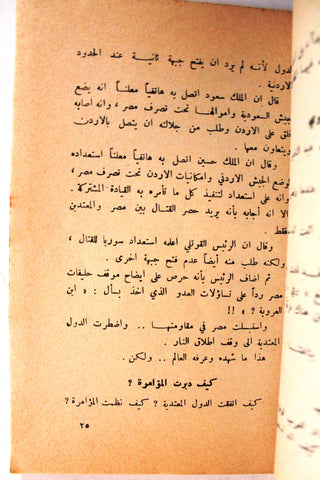 الدول لأنه لم يرد ان يفتح جبهة ثانية عند الحدود
الاردنية .
قال ان الملك سعود اتصل به هاتفياً معلناً انه يضع
جيش السعودية واموالها تحت تصرف مصر ، وانه اصابه
قلق على الاردن وطلب من جلالته ان يتصل بالاردن
ويتعاون معها .
وقال ان الملك حسين اتصل به هاتفياً معلناً استعداده
لوضع الجيش الاردني وامكانيات الاردن تحت تصرف مصر ،
وانه على استعداد لتنفيذ كل ما تأمره به القيادة المشتركة .
الا انه أجابه بأنه يريد حصر القتال بين مصر والمعتدين
فقط .
وقال ان الرئيس القوتلي اعلنه استعداد سوريا للقتال ،
ولكنه طلب منه أيضاً عدم فتح جبهة اخرى .
ثم اضاف الرئيس بأنه حرص على ايضاح موقف حليفات
مصر رداً على تساؤلات العدو الذي اخذ يسأل : « اين
العروبة ? » !!
واستبسلت مصر في مقاومتها ... واضطرت الدول
المعتدية الى وقف اطلاق النار .
هذا ما شهده وعرفه العالم .. ولكن .
كيف دبرت المؤامرة ?
كيف اتفقت الدول المعتدية ? كيف نظمت المؤامرة ?
٢٥